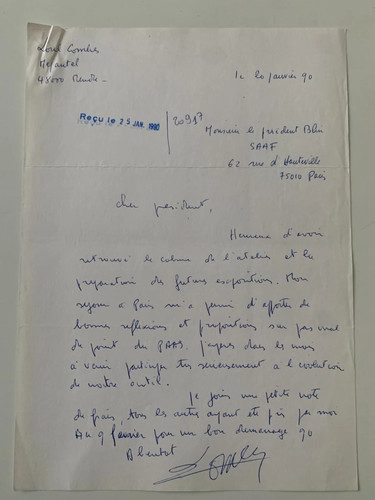 Louis Combes
48000 Mende -
le 20 janvier 90
Reçu le 25 JAN. 1990
20917
Monsieur le président Blin
SAAF
62 rue d'Hauteville
75010 Paris
Cher président,
Heureux d'avoir
retrouvé le calme de l'atelier et la
préparation des futures expositions. Mon
séjour à Paris m'a permis d'apporter de
bonnes réflexions et propositions sur pas mal
de point du j'espère dans les mois
à venir participer très sérieusement à l'évolution
de notre outil.
Je joins une petite note
de frais, tous les autres ayant été pris par moi
Au 9 février pour un bon démarrage 90
A bientôt